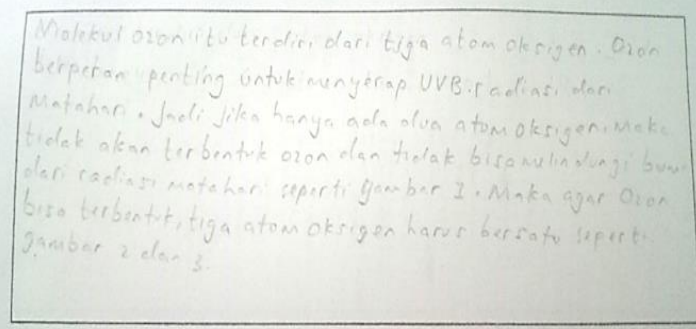 Molekul ozon itu terdiri dari tiga atom oksigen. Ozon
berperan penting untuk menyerap UVB radiasi dari
Matahari. Jadi jika hanya ada dua atom oksigen, maka
tidak akan terbentuk ozon dan tidak bisa melindungi bumi
dari radiasi matahari seperti gambar 1. Maka agar Ozon
bisa terbentuk, tiga atom oksigen harus bersatu seperti
gambar 2 dan 3.